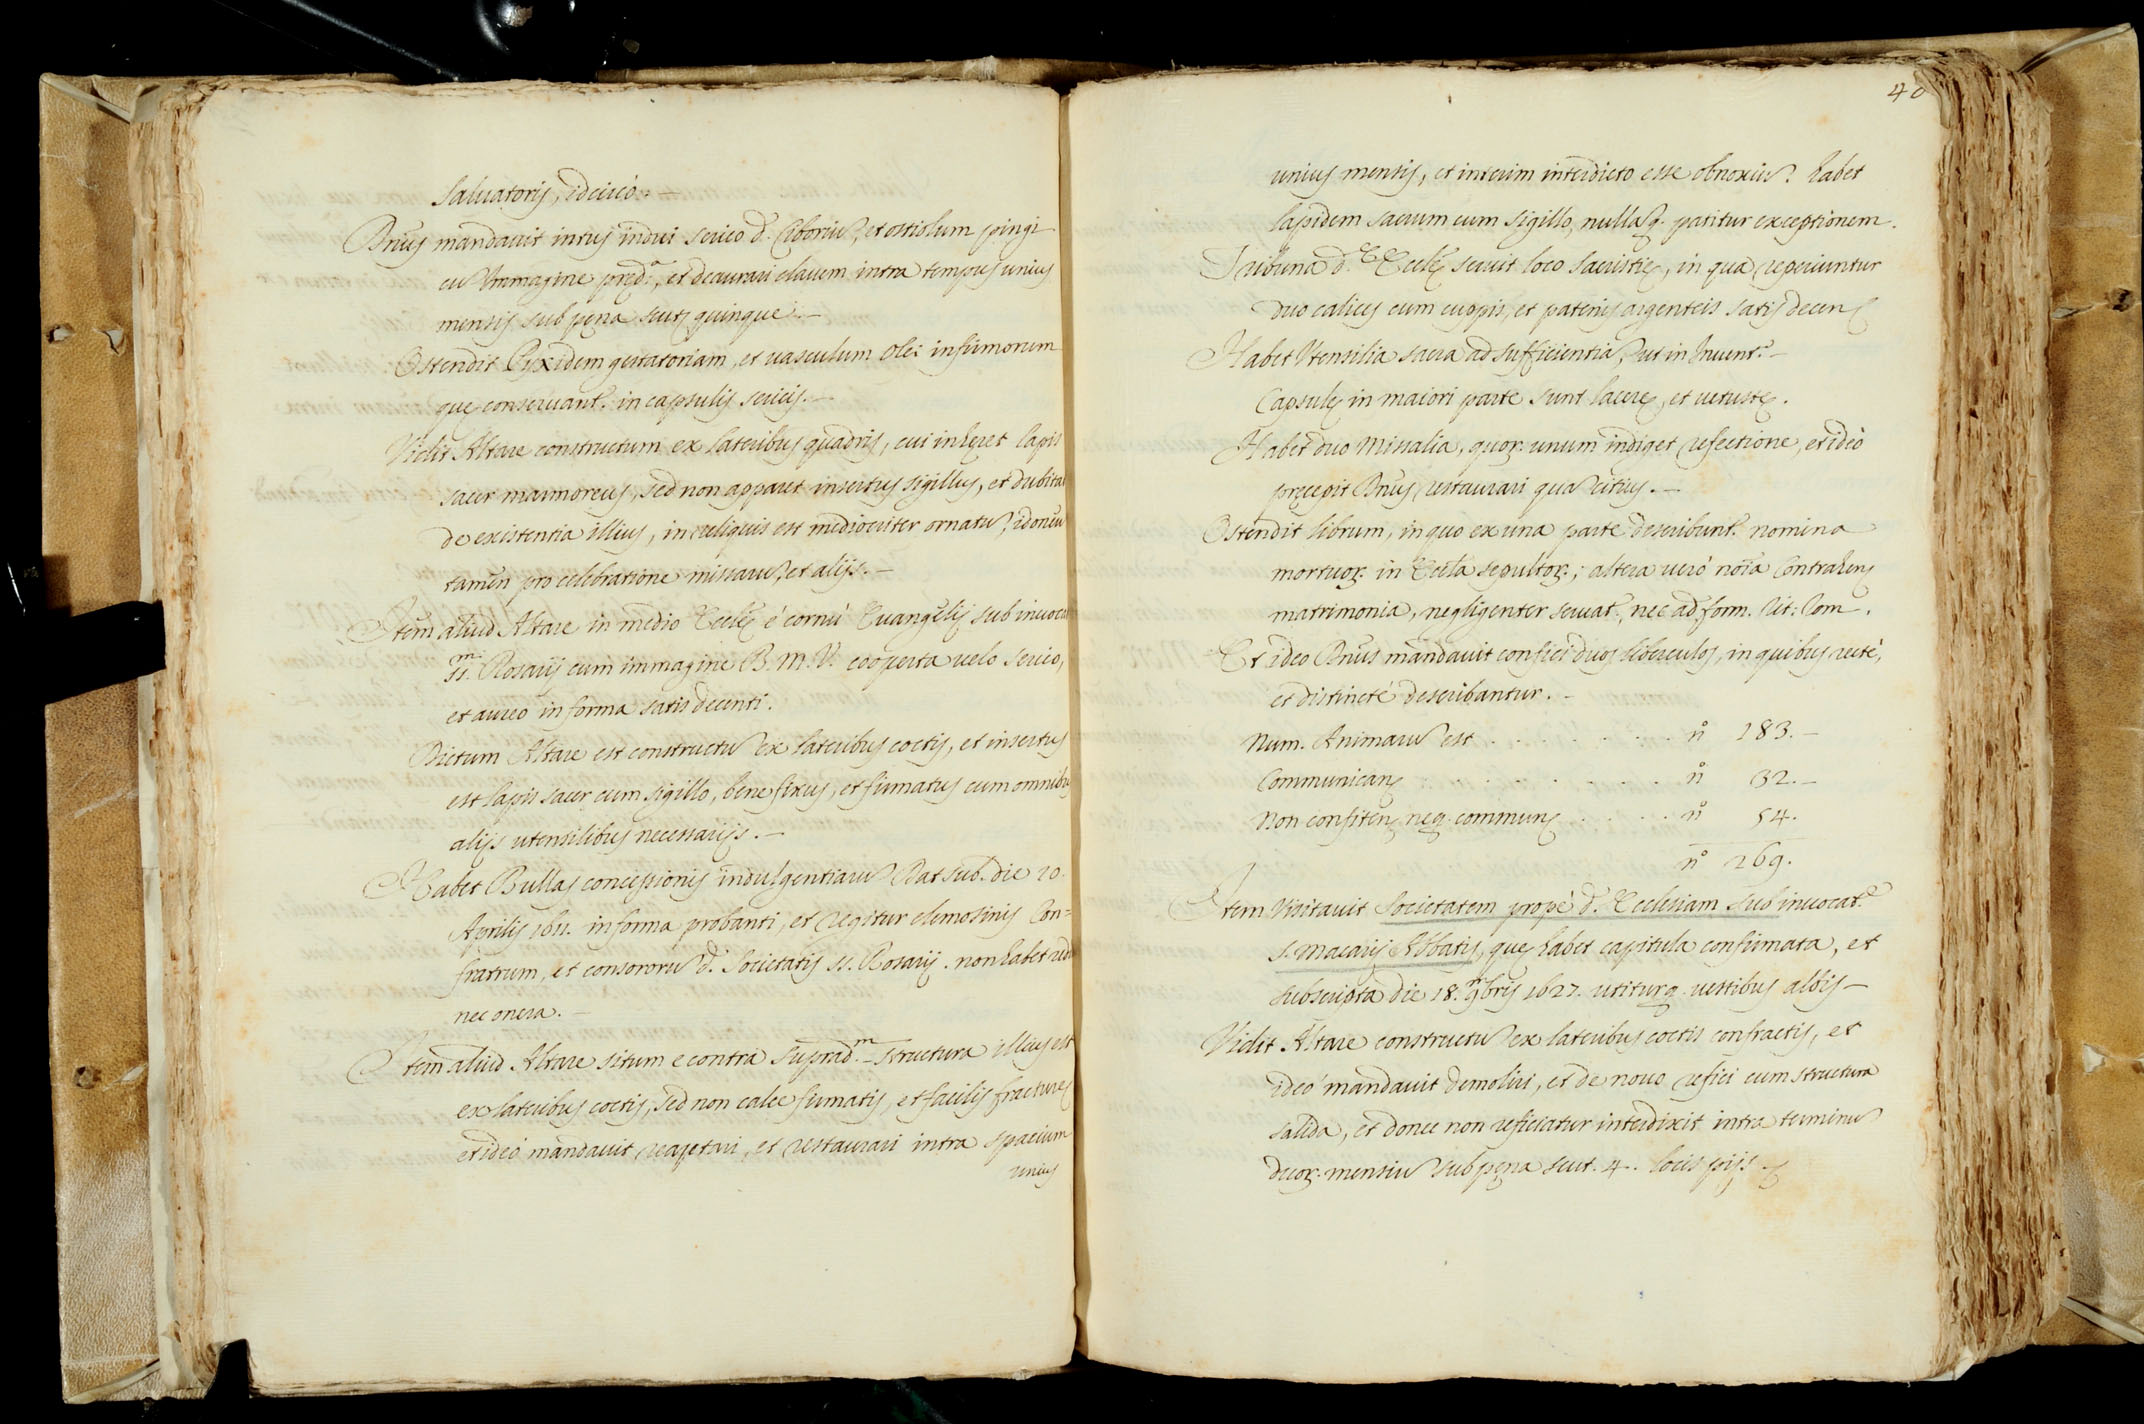 Saluatoris, idcircò. –
Dn̄us mandauit intus indui serico d. Ciboriũ, et ostiolum pingi
cũ Immagine pred.ᵃ, et deaurari clauem intra tempus unius
mensis sub pęna scut. quinque. –
Ostendit Pyxidem gestatoriam, et uasculum olei infirmorum
quę conseruant.ʳ in capsulis sericis. –
Vidit Altare constructum ex lateribus quadris, cui inhęret lapis
sacer marmoreus, sed non apparet insertus sigillus, et dubita
de existentia illius, in reliquis est mediocriter ornatũ, idoneũ
tamen pro celebratione missarũ, et alijs. –
Item aliud Altare in medio Eccl̄ę è cornù Euangelij sub inuoca
ss.ᵐⁱ Rosarij cum immagine B. M. V. cooperta uelo serico,
et aureo in forma satis decenti.
Dictum Altare est constructũ ex lateribus coctis, et insertus
est lapis sacer cum sigillo, bene fixus, et firmatus cum omnibus
alijs utensilibus necessarijs. –
Habet Bullas concessionis indulgentiarũ Dat sub. die 20.
Aprilis 1611. in forma probanti, et regitur elemosinis Con=
fratrum, et consororũ d. Societatis ss. Rosarij. non habet red
nec onera. –
Item aliud Altare situm e contra suprad.ᵐ structura illius est
ex lateribus coctis, sed non calce firmatis, et facilis fracturę
et ideò mandauit reaptari, et restaurari intra spacium
unius
40
unius mensis, et interim interdicto esse obnoxiũ. habet
lapidem sacrum cum sigillo, nullaq. patitur exceptionem.
Tribuna d.ᵉ Eccl̄ę seruit loco sacristię, in qua reperiuntur
duo calices cum cuppis, et patenis argenteis satis decen.
Habet Vtensilia sacra ad sufficientiã, ut in Inuent.º –
Capsulę in maiori parte sunt lacerę, et uetustę.
Habet duo Missalia, quor. unum indiget refectione, et ideò
pręcepit Dn̄us restaurari quã citius. –
Ostendit librum, in quo ex una parte describunt.ʳ nomina
mortuor. in Eccl̄a sepultor.; altera uerò nōīa Contrahen.
matrimonia, negligenter seruat.ʳ, nec ad form. Rit: Rom.
Et ideo Dn̄us mandauit confici duos liberculos, in quibus rectè,
et distinctè describantur. –
Num. Animarũ est . . . . . . . nº 183. –
Communican. . . . . . . . . nº 32. –
Non confiten. neq. commun. . . . . nº 54.
nº 269.
Item Visitauit Societatem propè d. Ecclesiam sub inuocat.ᵉ
S. Macarij Abbatis, quę habet capitula confirmata, et
subscripta die 18. 9bris 1627. utiturq. uestibus albis –
Vidit Altare constructũ ex lateribus coctis confractis, et
ideò mandauit demoliri, et de nouo refici cum structura
salida, et donec non reficiatur interdixit intra terminũ
duor. mensiũ sub pęna scut. 4. locis pijs.